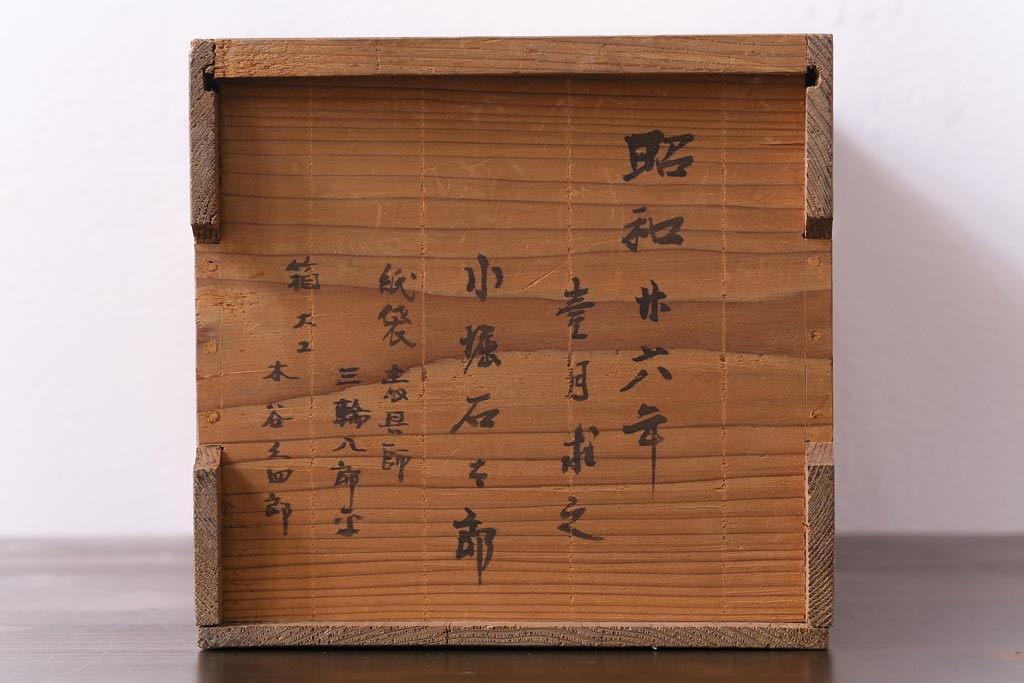 昭和廿六年
壹月求之
小堀石太郎
紙袋 表具師
三輪八郎平
箱 大工
木谷久四郎